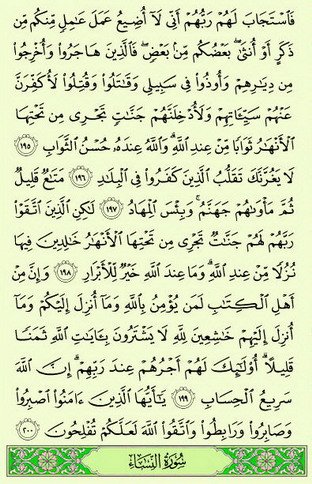 فَٱسْتَجَابَ لَهُمْ رَبُّهُمْ أَنِّى لَآ أُضِيعُ عَمَلَ عَٰمِلٍ مِّنكُم مِّن
ذَكَرٍ أَوْ أُنثَىٰ ۖ بَعْضُكُم مِّنۢ بَعْضٍ ۖ فَٱلَّذِينَ هَاجَرُوا۟ وَأُخْرِجُوا۟
مِن دِيَٰرِهِمْ وَأُوذُوا۟ فِى سَبِيلِى وَقَٰتَلُوا۟ وَقُتِلُوا۟ لَأُكَفِّرَنَّ
عَنْهُمْ سَيِّـَٔاتِهِمْ وَلَأُدْخِلَنَّهُمْ جَنَّٰتٍ تَجْرِى مِن تَحْتِهَا
ٱلْأَنْهَٰرُ ثَوَابًا مِّنْ عِندِ ٱللَّهِ ۗ وَٱللَّهُ عِندَهُۥ حُسْنُ ٱلثَّوَابِ ١٩٥
لَا يَغُرَّنَّكَ تَقَلُّبُ ٱلَّذِينَ كَفَرُوا۟ فِى ٱلْبِلَٰدِ ١٩٦ مَتَٰعٌ قَلِيلٌ
ثُمَّ مَأْوَىٰهُمْ جَهَنَّمُ ۚ وَبِئْسَ ٱلْمِهَادُ ١٩٧ لَٰكِنِ ٱلَّذِينَ ٱتَّقَوْا۟
رَبَّهُمْ لَهُمْ جَنَّٰتٌ تَجْرِى مِن تَحْتِهَا ٱلْأَنْهَٰرُ خَٰلِدِينَ فِيهَا
نُزُلًا مِّنْ عِندِ ٱللَّهِ ۗ وَمَا عِندَ ٱللَّهِ خَيْرٌ لِّلْأَبْرَارِ ١٩٨ وَإِنَّ مِنْ
أَهْلِ ٱلْكِتَٰبِ لَمَن يُؤْمِنُ بِٱللَّهِ وَمَآ أُنزِلَ إِلَيْكُمْ وَمَآ
أُنزِلَ إِلَيْهِمْ خَٰشِعِينَ لِلَّهِ لَا يَشْتَرُونَ بِـَٔايَٰتِ ٱللَّهِ ثَمَنًا
قَلِيلًا ۗ أُو۟لَٰٓئِكَ لَهُمْ أَجْرُهُمْ عِندَ رَبِّهِمْ ۗ إِنَّ ٱللَّهَ
سَرِيعُ ٱلْحِسَابِ ١٩٩ يَٰٓأَيُّهَا ٱلَّذِينَ ءَامَنُوا۟ ٱصْبِرُوا۟
وَصَابِرُوا۟ وَرَابِطُوا۟ وَٱتَّقُوا۟ ٱللَّهَ لَعَلَّكُمْ تُفْلِحُونَ ٢٠٠
سُورَةُ النِّسَاءِ